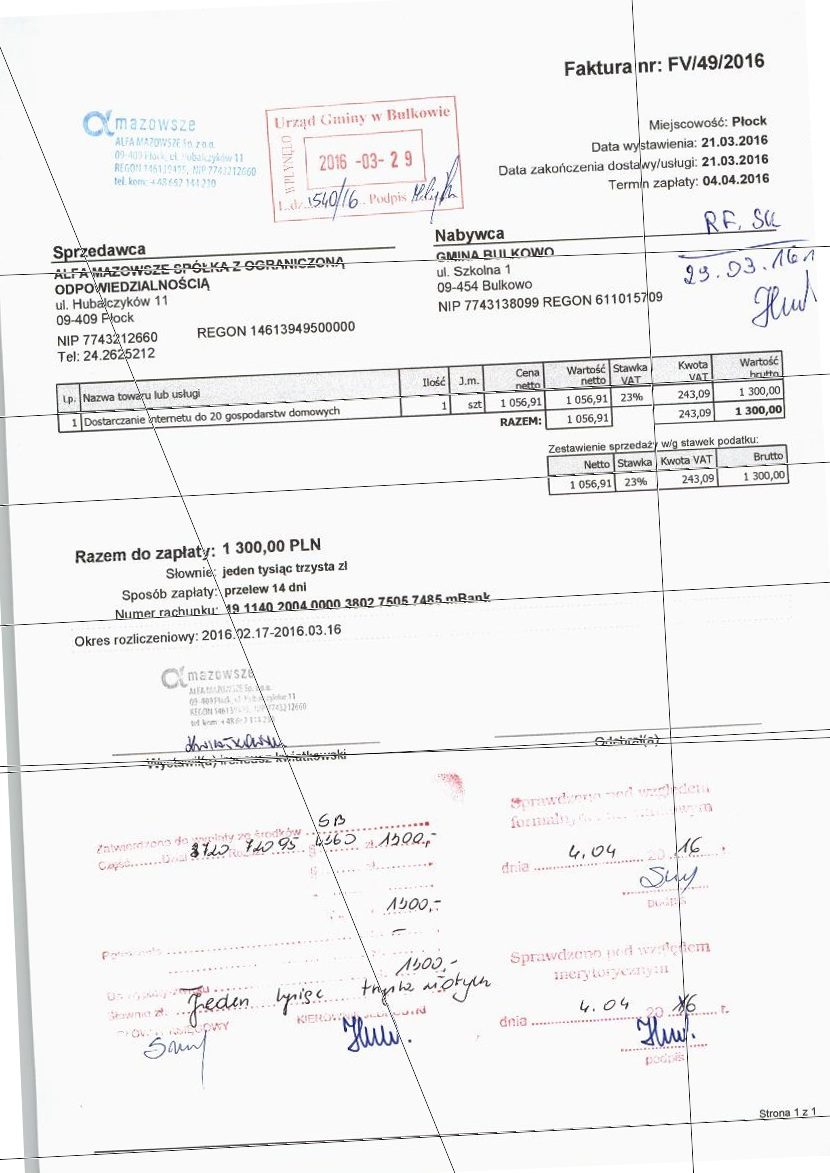 Faktura nr: FV/49/2016
mazowsze
ALFA MAZOWSZE Sp. z o.o.
09-409 Płock, ul. Hubalczyków 11
REGON 146139495, NIP 7743212660
tel. kom: +48 662 144 230
Urząd Gminy w Bulkowie
WPŁYNĘŁO
2016 -03- 29
L.dz. 1540/16 Podpis
Miejscowość: Płock
Data wystawienia: 21.03.2016
Data zakończenia dostawy/usługi: 21.03.2016
Termin zapłaty: 04.04.2016
RF. SK
29.03.16
Sprzedawca
ALFA MAZOWSZE SPÓŁKA Z OGRANICZONĄ
ODPOWIEDZIALNOŚCIĄ
ul. Hubalczyków 11
09-409 Płock
NIP 7743212660 REGON 14613949500000
Tel: 24.2625212
Nabywca
GMINA BULKOWO
ul. Szkolna 1
09-454 Bulkowo
NIP 7743138099 REGON 611015709
Lp. Nazwa towaru lub usługi Ilość J.m. Cena netto Wartość netto Stawka VAT Kwota VAT Wartość brutto
1 Dostarczanie internetu do 20 gospodarstw domowych 1 szt 1 056,91 1 056,91 23% 243,09 1 300,00
RAZEM: 1 056,91 243,09 1 300,00
Zestawienie sprzedaży w/g stawek podatku:
Netto Stawka Kwota VAT Brutto
1 056,91 23% 243,09 1 300,00
Razem do zapłaty: 1 300,00 PLN
Słownie: jeden tysiąc trzysta zł
Sposób zapłaty: przelew 14 dni
Numer rachunku: 49 1140 2004 0000 3802 7505 7485 mBank
Okres rozliczeniowy: 2016.02.17-2016.03.16
mazowsze
ALFA MAZOWSZE Sp. z o.o.
09-409 Płock, ul. Hubalczyków 11
Wystawił(a) Ireneusz Kwiatkowski
Odebrał(a)
Zatwierdzono do wypłaty ze środków
SB
Część Dział Rozdz. § zł. 1300,-
§ zł.
1300,-
1300,-
Słownie zł. Jeden tysiąc trzysta złotych
KSIĘGOWY
Sprawdzono pod względem
dnia 4.04 2016 r.
podpis
Sprawdzono pod względem
merytorycznym
dnia 4.04 2016 r.
podpis
Strona 1 z 1